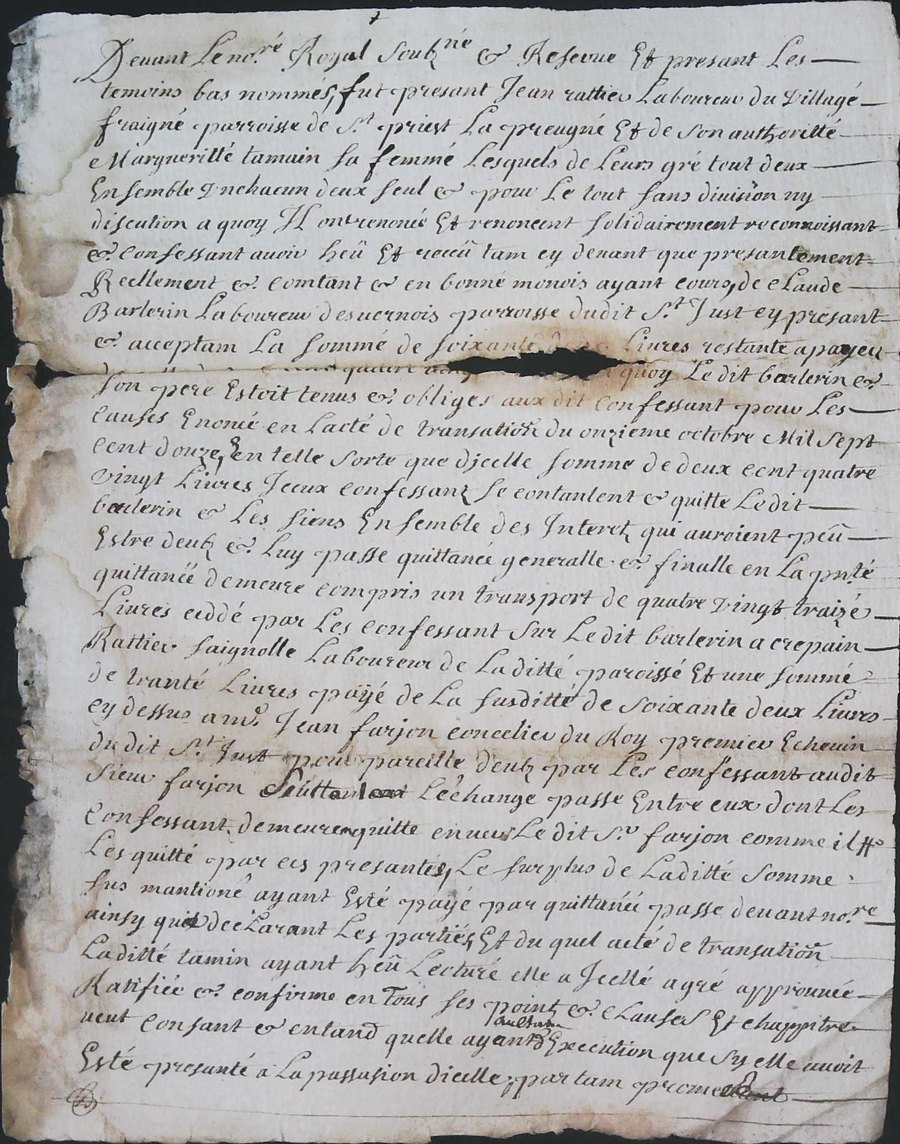 Devant Le no.re Royal Soubz.né & Reservé Et presant Les
temoins bas nommés, fut presant Jean rattier Laboureur du Villagé
fraigné parroisse de St. priest La preugné Et de Son authoritté
Margueritté tamain sa femmé Lesquels de Leurs gré tout deux
Ensemble Unchacun deux seul & pour Le tout sans division ny
discution a quoy Il ont renoncé Et renoncent solidairement reconnoissant
& Confessant avoir heü Et receü tam cy devant que presantement
Reellement & comtant & en bonne monois ayant cours, de Claude
Barlerin Laboureur desvernois parroisse dudit St. Just cy presant
& acceptam La sommé de soixante Livres restante a payer
quatre quoy Le dit barlerin &
son pere Estoit tenus & obliges aux dit Confessant pour Les
Causes Enoncé en Lacté de transation du onzieme octobre Mil Sept
Cent douze, En telle sorte que djcelle somme de deux cent quatre
vingt Livres Jceux confessant Se contantent & quitte Le dit
barlerin & Les siens Ensemble des Interetz qui auroient peü
Estre deubz & Luy passe quittancé generalle & finalle en La pnté
quittancé demeure compris un transport de quatre vingt traizé
Livres ceddé par Les confessant sur Le dit barlerin a crepain
Rattier saignolle Laboureur de La ditté paroissé Et une sommé
de tranté Livres payé de La susditté de soixante deux Livres
cy dessus a mr. Jean farjon concelier du Roy premier Echevin
du dit St. Just pour pareille deubz par Les confessant audit
sieur farjon Leéchange passe Entre eux dont Les
Confessant demeure quitte envers Le dit Sr. farjon comme il
Les quitté par ces presantes, Le surplus de La ditté Somme
sus mantioné ayant Esté payé par quittancé passe devant no.re
ainsy que decLarant Les partiés, Et du quel acté de transation
La ditté tamin ayant heü Lecturé elle a Jcellé agré approuvée
Ratifiée & confirme en tous ses pointz & clauses Et chappitre
veut consant & entand quelle ayant Execution que sy elle avoit
Esté presanté a La passasion dicelle, par tam prome